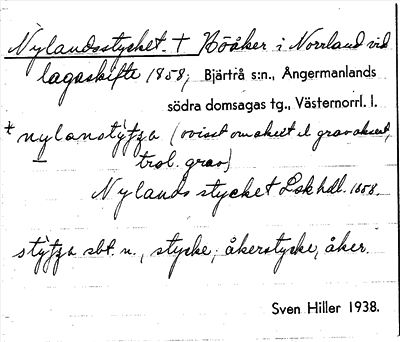 Nylandsstycket. † Böåker i Norrland vid
lagaskifte 1858; Bjärtrå s:n., Ångermanlands
södra domsagas tg., Västernorrl. l.
* nylanstýtza (ovisst om akut el. grav aksent,
trol. grav)
Nylands stycket Lskhdl. 1858.
stýtza sbt. n., stycke; åkerstycke, åker.
Sven Hiller 1938.